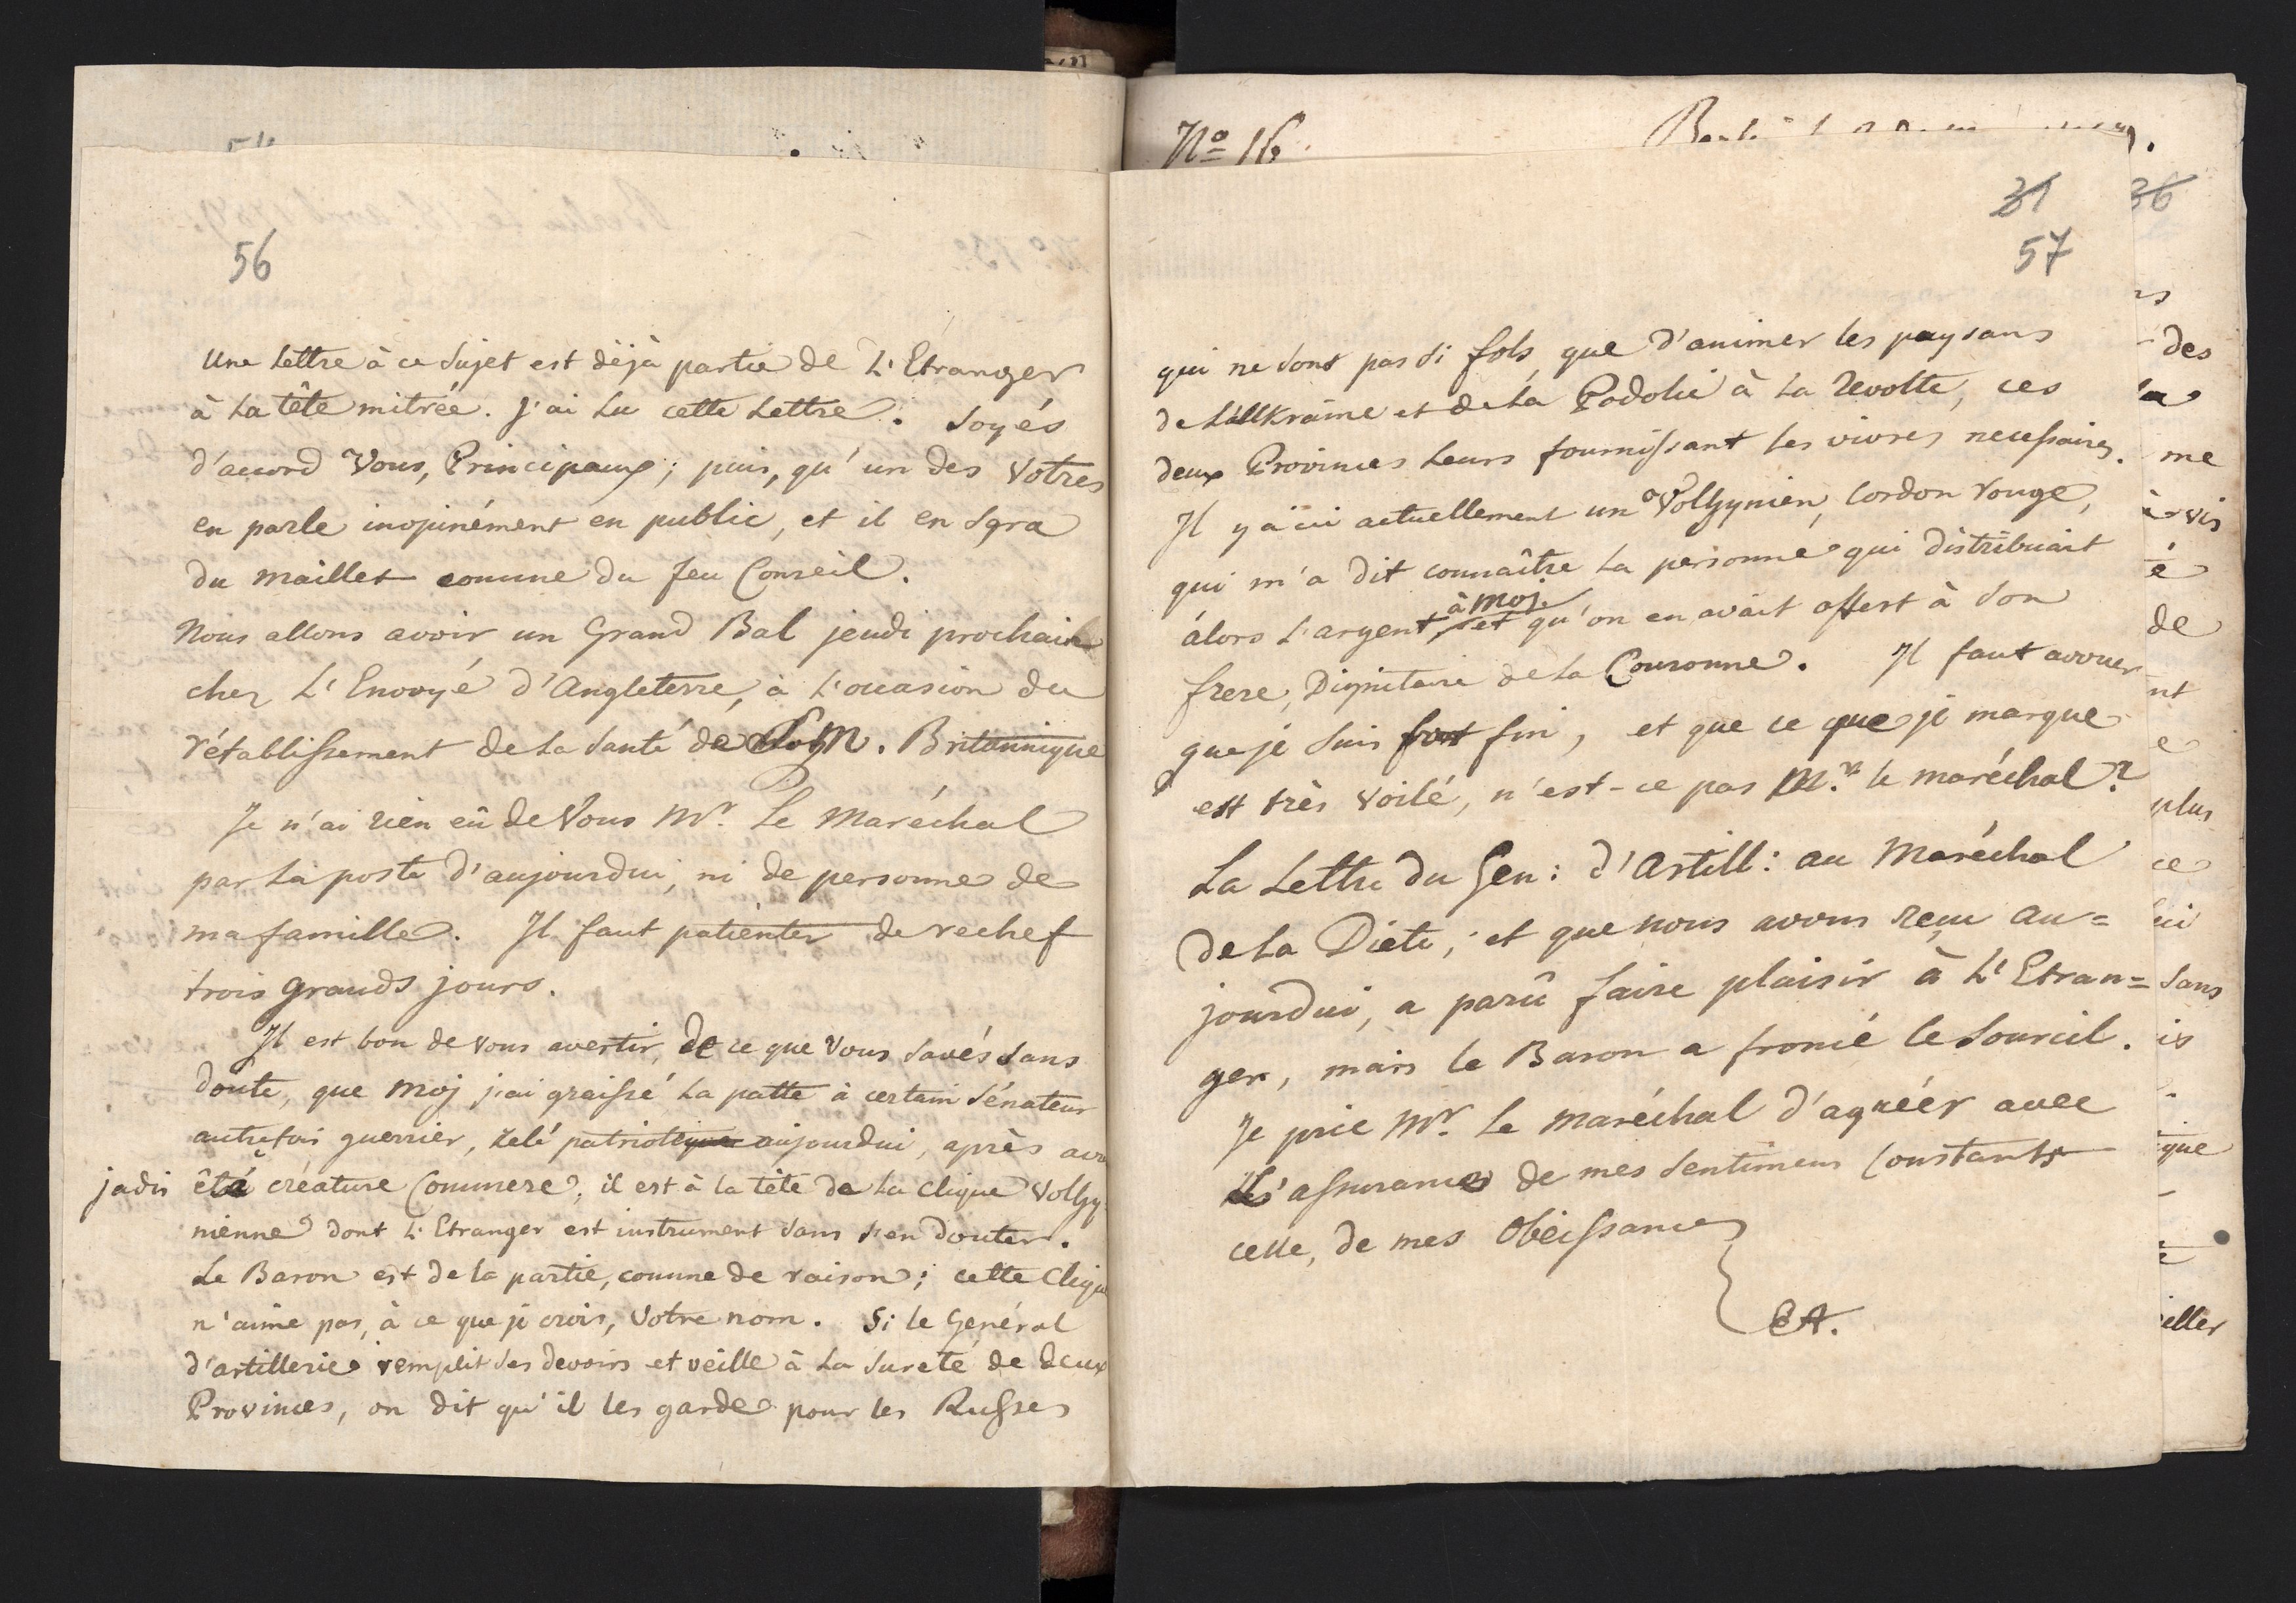 56
Une lettre à ce sujet est dèjà partie de L'Etranger
à la tête mitrée. J'ai lu cette lettre. Soyés
d'accord Vous, Principaux; puis, qu'un des Votres
en parle inopinément en public, et il en sera
du maillet comme du feu Conseil.
Nous allons avoir un Grand Bal jeudi prochain
chez L'Envoyé d'Angleterre, à l'occasion du
rétablissement de la santé de M. Britannique
Je n'ai rien eû de Vous Mr. Le Maréchal
par la poste d'aujourdui, ni de personne de
ma famille. Il faut patienter de rechef
trois grands jours.
Il est bon de vous avertir, de ce que Vous savés sans
doute, que moj j'ai graissé la patte à certain sénateur
autrefois guerrier, zelé patriotique aujourdui, après avo
jadis été créature Commere; il est à la tête de la clique Volhy
nienne dont L'Etranger est instrument sans s'en douter.
Le Baron est de la partie, comme de raison; cette Cliqu
n'aime pas, à ce que je crois, Votre nom. Si le Général
d'artillerie remplit ses devoirs et veille à la sureté de deux
Provinces, on dit qu'il les garde pour les Russes
No 16.
31
36
57
qui ne sont pas si fols, que d'animer les paysans
de L'Ukraine et de la Podolie à la revolte, ces
deux Provinces leurs fournissant les vivres necessaires.
Il y a ici actuellement un Volhynien, Cordon rouge,
qui m'a dit connaître la personne qui distribuait
à moj
alors l'argent, et qu'on en avait offert à son
frere, Dignitaire de la Couronne. Il faut avouer
que je suis fort fin, et que ce que je marque
est très voilé, n'est-ce pas Mr. le maréchal?
La Lettre du Gen: d'Artill: au Maréchal
de la Diete, et que nous avons reçu au=
jourdui, a parû faire plaisir à L'Etran=
ger, mais le Baron a froncé le sourcil.
Je prie Mr. le maréchal d'agréér avec
L'assurance de mes sentimens constants
celle, de mes Obeissances
EA.
des
me
vis
é
de
nt
e
plus
ce
sans
is
que
eller